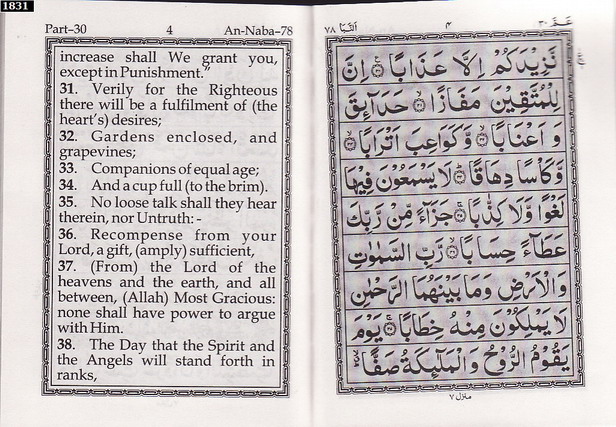 1831
Part–30 4 An-Naba–78
increase shall We grant you,
except in Punishment.”
31. Verily for the Righteous
there will be a fulfilment of (the
heart's) desires;
32. Gardens enclosed, and
grapevines;
33. Companions of equal age;
34. And a cup full (to the brim).
35. No loose talk shall they hear
therein, nor Untruth: -
36. Recompense from your
Lord, a gift, (amply) sufficient,
37. (From) the Lord of the
heavens and the earth, and all
between, (Allah) Most Gracious:
none shall have power to argue
with Him.
38. The Day that the Spirit and
the Angels will stand forth in
ranks,
عـمّ ٣٠ ٤ النَّبَا ٧٨
نَّزِيْدَكُمْ اِلَّا عَذَابًا ۝ اِنَّ
لِلْمُتَّقِيْنَ مَفَازًا ۝ حَدَآئِقَ
وَ اَعْنَابًا ۝ وَّكَوَاعِبَ اَتْرَابًا ۝
وَّكَاْسًا دِهَاقًا ۝ لَا يَسْمَعُوْنَ فِيْهَا
لَغْوًا وَّلَا كِذّٰبًا ۝ جَزَآءً مِّنْ رَّبِّكَ
عَطَآءً حِسَابًا ۝ رَّبِّ السَّمٰوٰتِ
وَالْاَرْضِ وَمَا بَيْنَهُمَا الرَّحْمٰنِ
لَا يَمْلِكُوْنَ مِنْهُ خِطَابًا ۝ يَوْمَ
يَقُوْمُ الرُّوْحُ وَالْمَلٰٓئِكَةُ صَفًّا
منزل ٧